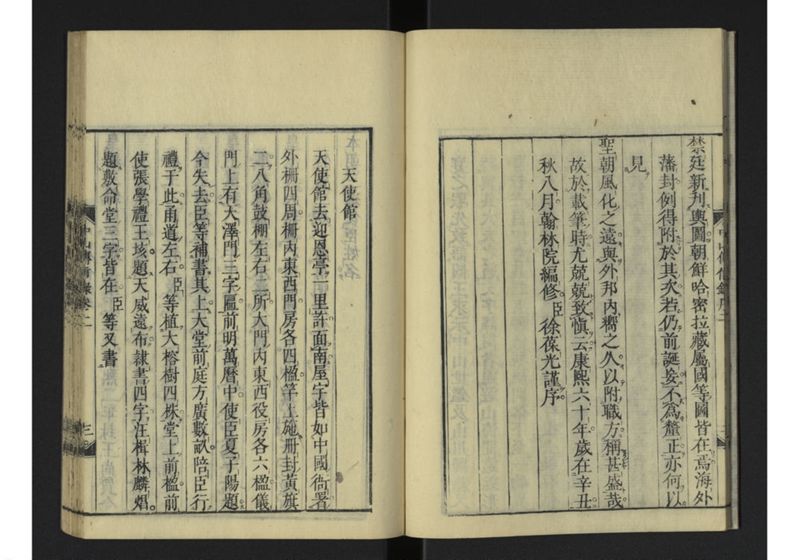 禁廷新刊輿圖朝鮮哈密拉藏屬國等圖皆在焉海外
藩封例得附於其次若仍前誕妄不爲釐正亦何以
見
聖朝風化之遠與外邦內嚮之久以附職方稱甚盛哉
故於載筆時尤兢兢致愼云康熙六十年歲在辛丑
秋八月翰林院編修臣徐葆光謹序
中山傳信錄序二
天使館
天使館去迎恩亭一里許面南屋宇皆如中國衙署
外柵四周柵內東西門房各四楹竿上施冊封黃旗
二八角鼓棚左右二所大門內東西役房各六楹儀
門上有大澤門三字匾前明萬曆中使臣夏子陽題
今失去臣等補書其上大堂前庭方廣數畝陪臣行
禮于此甬道左右臣等植大榕樹四株堂上前楹前
使張學禮王垓題天威遠布隷書四字汪楫林麟焻
題敷命堂三字皆在臣等又書
中山傳信錄卷二
三